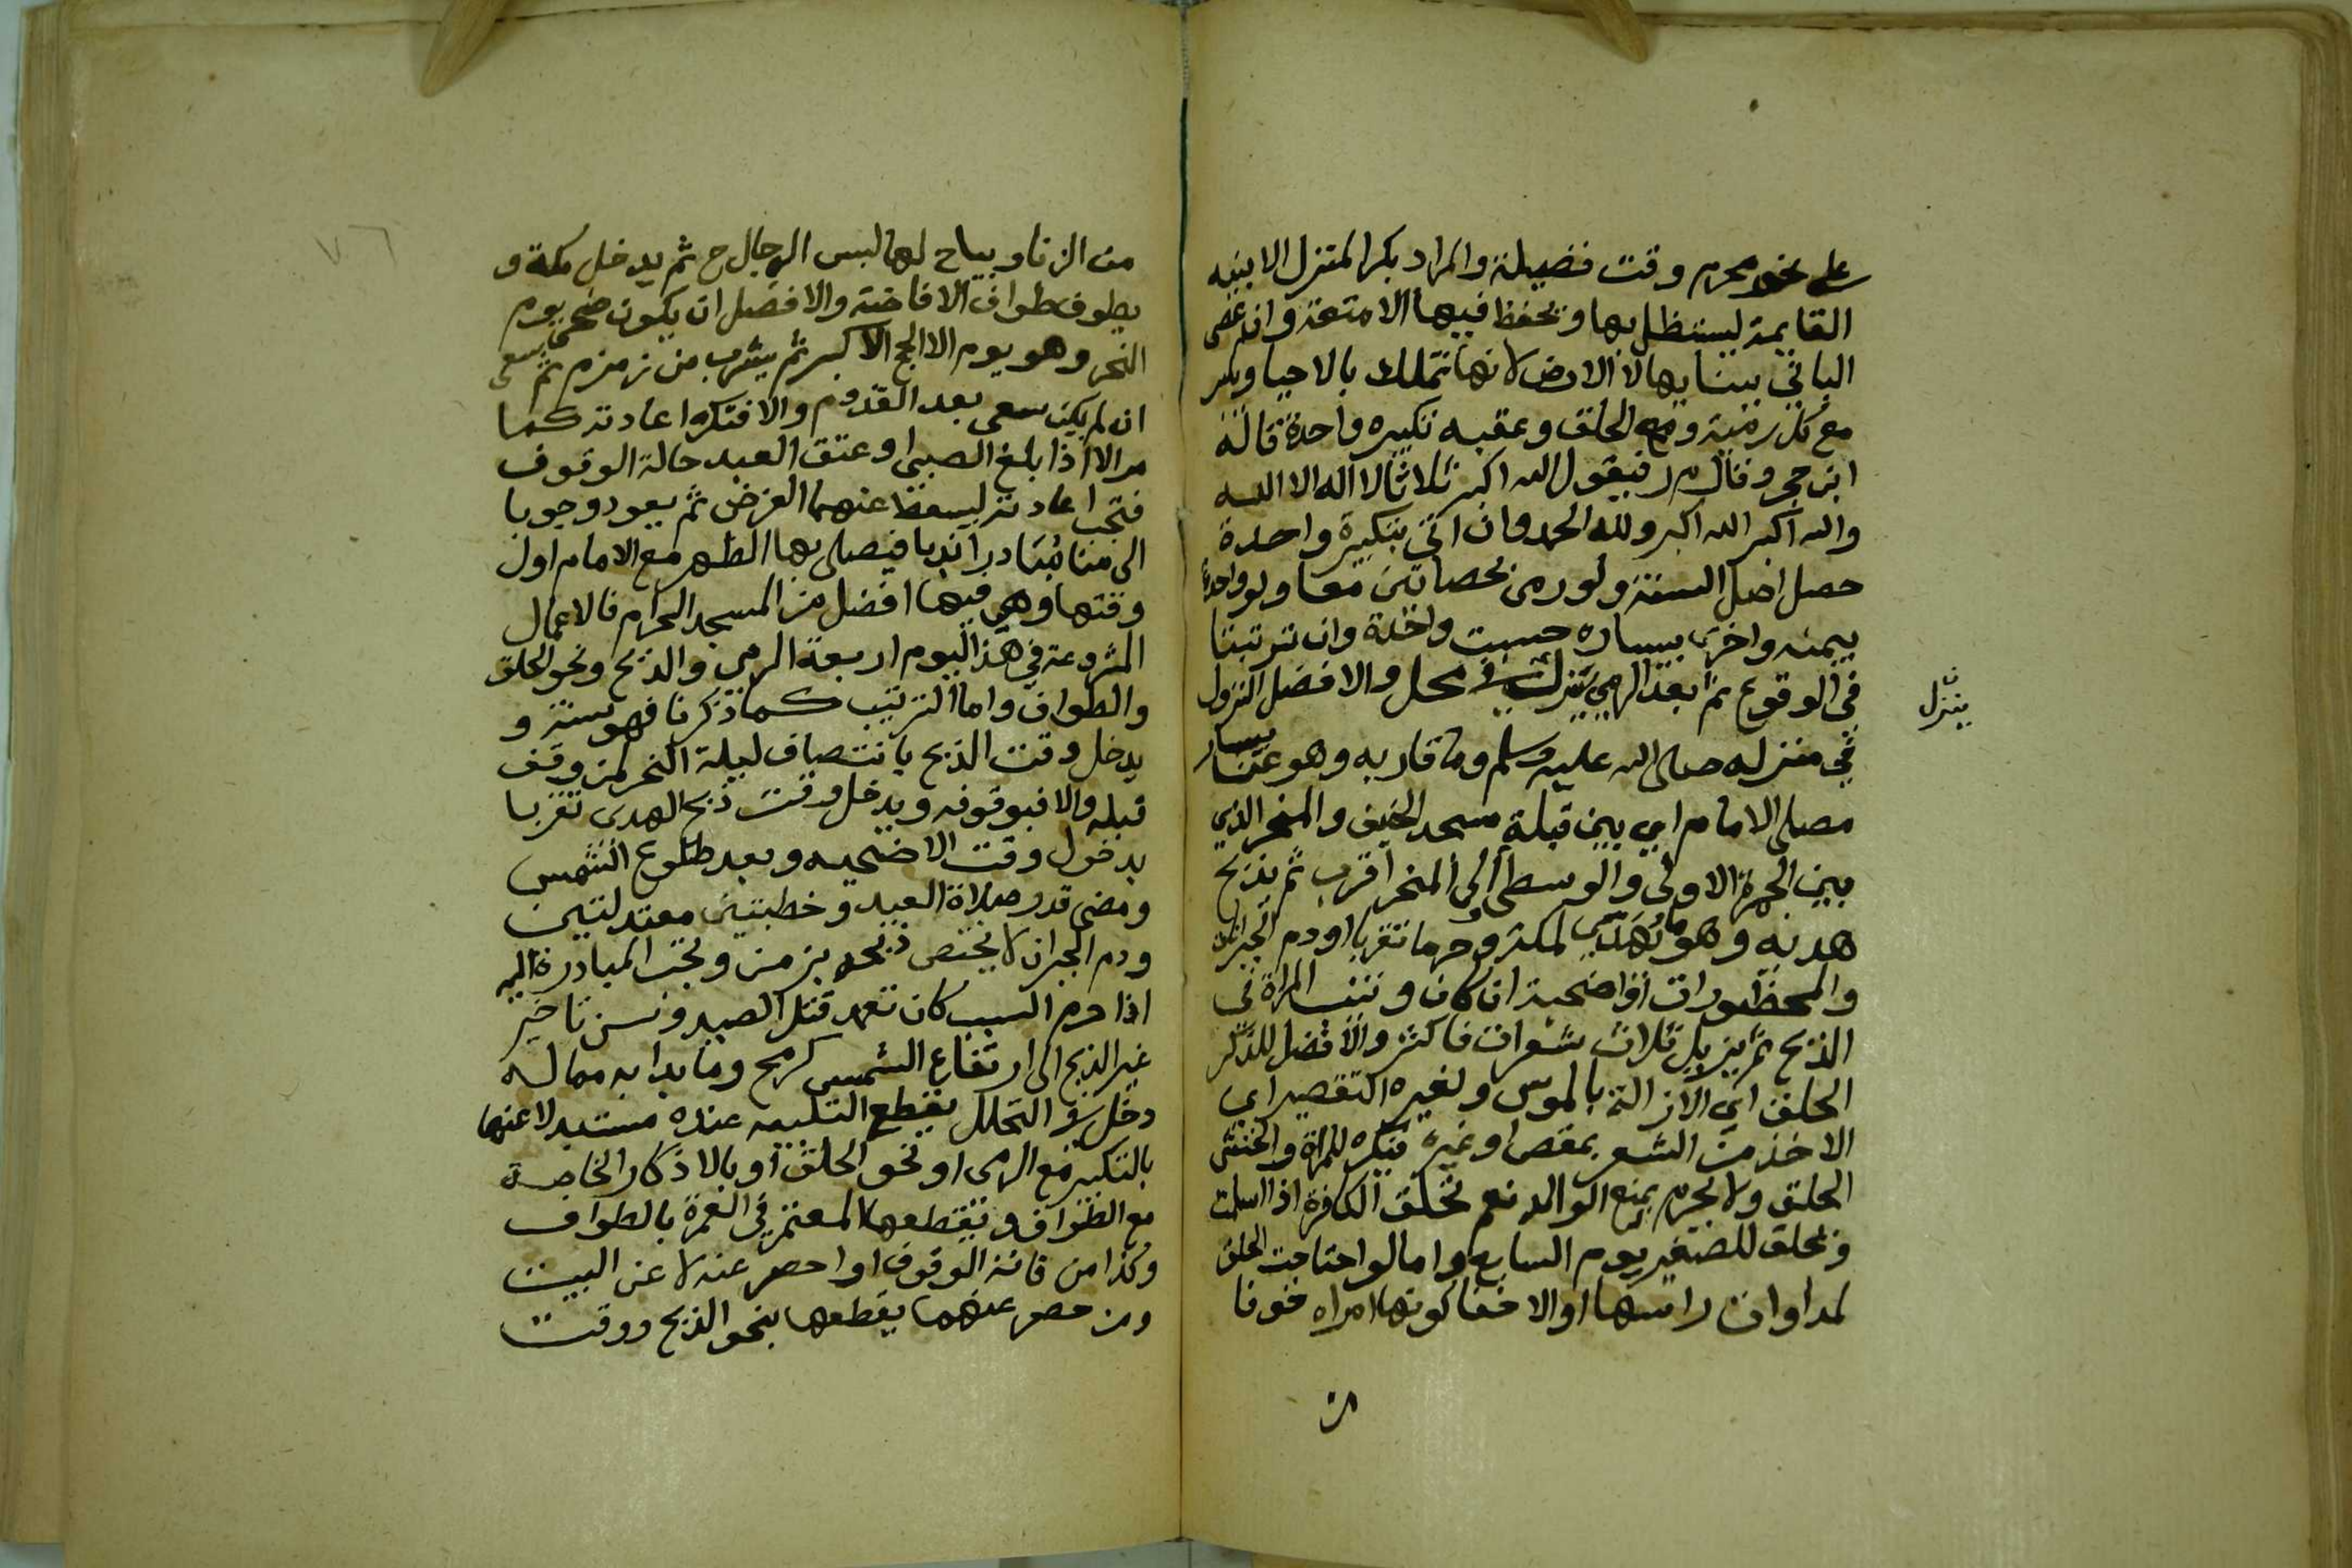 على نحو محرم وقت فضيلة والمراد بكرا لمتنزل الابنيه
القايمة ليستظل بها وتحفظ فيها الامتعة وان عصى
الباني ببنايها لا الارض لانها تملك بالاحيا ويكبر
مع كل رمية ومع الحلق وعقبه تكبيره واحدة قاله
ابن حجر وقال م ر فيقول الله اكبر ثلاثا لا اله الا الله
والله اكبر الله اكبر ولله الحمد وان اتى بتكبيرة واحدة
حصل اصل السنة ولو رمى بحصاتين معا ولو واحدة
بيمنه واخرى بيساره حسبت واحدة وان ترتبتا
في الوقوع ثم بعد الرمي ينزل في محل والافضل النزول
ينزل
في منزله صلى الله عليه وسلم وما قاربه وهو عن يسار
مصلى الامام اي بين قبلة مسجد الخيف والمنحر الذي
بين الجمرة الاولى والوسطى الى المنحر اقرب ثم يذبح
هديه وهو ما يهدى لمكة وحرمها تقربا او دم الجبران
والمحظورات او اضحية ان كان وتنيب المراة في
الذبح ثم يزيل ثلاث شعرات فاكثر والافضل للذكر
الحلق اي الازالة بالموس ولغيره التقصير اي
الاخذ من الشعر بمقص او غيره فيكره للمراة والخنثى
الحلق ولا يحرم بمنع الوالد نعم تحلق الكافرة اذا اسلمت
وتحلق للصغير يوم السابع واما لو احتاجت الحلق
لمداوات راسها او لاخفا كونها امراه خوفا
من
من الزنا ويباح لها لبس الرجال ح ثم يدخل مكة و
يطوف طواف الافاضة والافضل ان يكون ضحى يوم
النحر وهو يوم الا الحج الاكبر ثم يشرب من زمزم ثم يسعى
ان لم يكن سعى بعد القدوم والا فتكره اعادته كما
مر الا اذا بلغ الصبي او عتق العبد حالة الوقوف
فتجب اعادته ليسقط عنهما الفرض ثم يعود وجوبا
الى منا مبادرا ندبا فيصلى بها الظهر مع الامام اول
وقتها وهي فيها افضل من المسجد الحرام فالاعمال
المشروعة في هذا اليوم اربعة الرمي والذبح ونحو الحلق
والطواف واما الترتيب كما ذكرنا فهو سنة و
يدخل وقت الذبح بانتصاف ليلة النحر لمن وقف
قبله والا فبوقوفه ويدخل وقت ذبح الهدى تقربا
بدخول وقت الاضحيه وبعد طلوع الشمس
ومضى قدر صلاة العيد وخطبتين معتدلتين
ودم الجبران لا يختص ذبحه بزمن وتجب المبادرة اليه
اذا حرم السبب كان تعمد قتل الصيد وسن تاخير
غير الذبح الى ارتفاع الشمس كرمح وما بدا به مما له
دخل في التحلل يقطع التلبيه عنده مستبدلا عنها
بالتكبير مع الرمى او نحو الحلق او بالاذكار الخاصة
مع الطواف ويقطعها المعتمر في العمرة بالطواف
وكذا من فاته الوقوف او احصر عنه لا عن البيت
ومن حصر عنهما يقطعها بنحو الذبح ووقت
٧٦